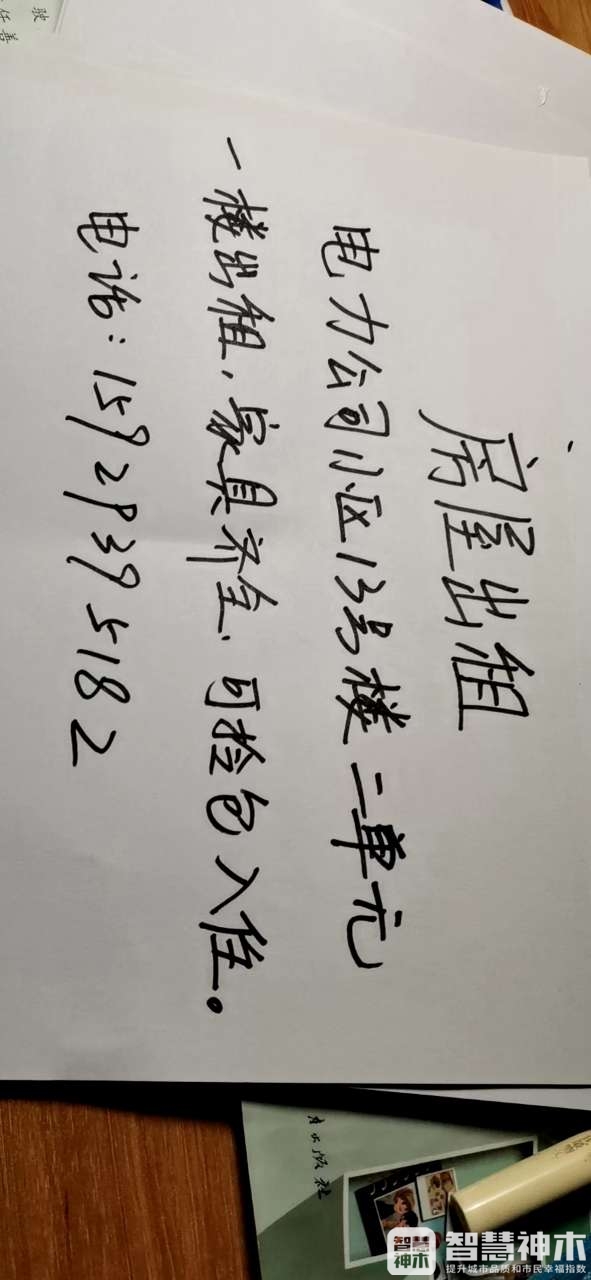 房屋出租
电力公司小区13号楼二单元
一楼出租,家具齐全、可拎包入住。
电话:15929395182
出版社
智慧神木
智慧神木
提升城市品质和市民幸福指数